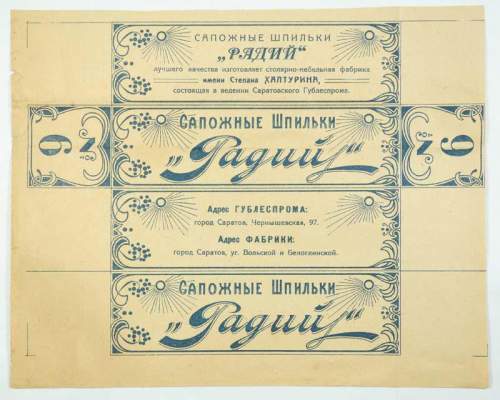 САПОЖНЫЕ ШПИЛЬКИ
„РАДИЙ"
лучшего качества изготовляет столярно-мебельная фабрика
имени Степана ХАЛТУРИНА,
состоящая в ведении Саратовского Гублеспрома.
№ 9
САПОЖНЫЕ ШПИЛЬКИ
„Радий"
№ 9
Адрес ГУБЛЕСПРОМА:
город Саратов, Чернышевская, 97.
Адрес ФАБРИКИ:
город Саратов, уг. Вольской и Белоглинской.
САПОЖНЫЕ ШПИЛЬКИ
„Радий"